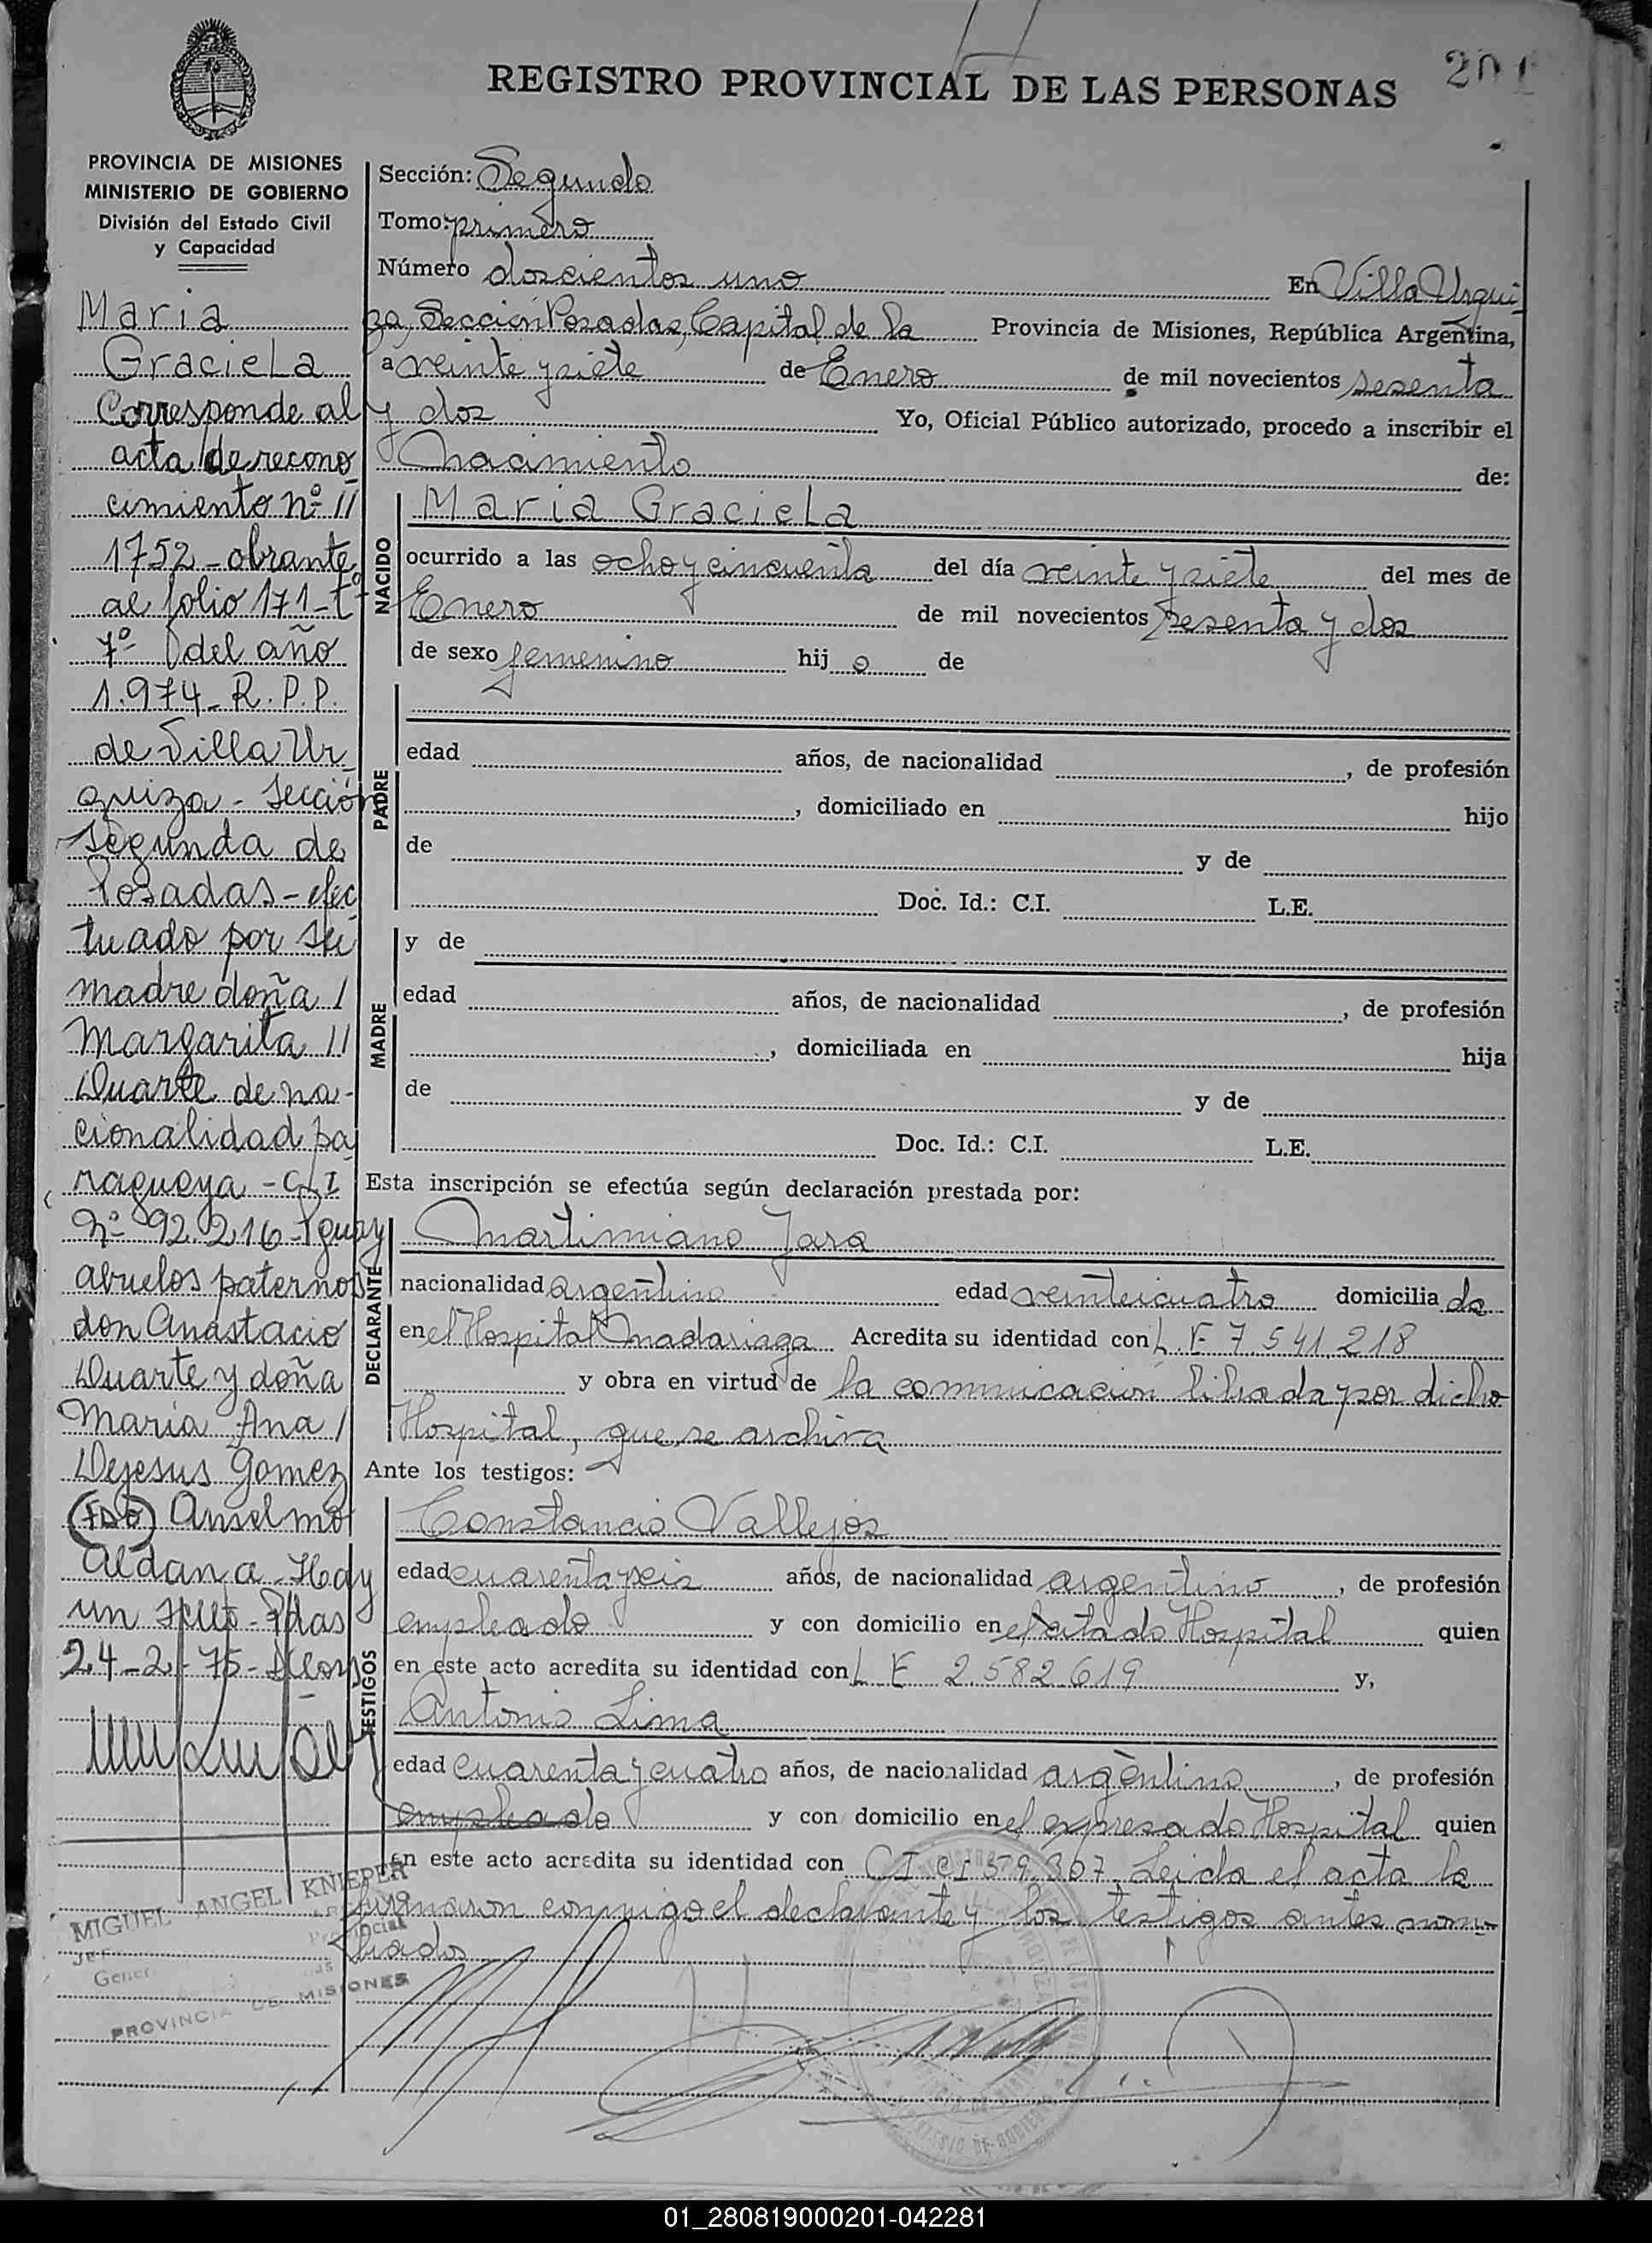 REGISTRO PROVINCIAL DE LAS PERSONAS
201
PROVINCIA DE MISIONES
MINISTERIO DE GOBIERNO
División del Estado Civil
y Capacidad
Maria
Graciela
Corresponde al
acta de recono
cimiento nº //
1752 - obrante
al folio 171 - tº
7º del año
1.974 - R.P.P.
de Villa Ur
quiza - Sección
Segunda de
Posadas - efec
tuado por su
madre doña /
Margarita //
Duarte de na-
cionalidad pa
raguaya - C.I
Nº 92.216 - Pguay
abuelos paternos
don Anastacio
Duarte y doña
Maria Ana /
Dejesus Gomez
(FDO) Anselmo
Aldana - Hay
un sello - Pdas
24-2-75-
MIGUEL ANGEL KNIEPER
PROVINCIA DE MISIONES
Sección: Segundo
Tomo: primero
Número doscientos uno En Villa Urqui
za, Sección Posadas, Capital de la Provincia de Misiones, República Argentina,
a veinte y siete de Enero de mil novecientos sesenta
y dos Yo, Oficial Público autorizado, procedo a inscribir el
Nacimiento de:
NACIDO
Maria Graciela
ocurrido a las ocho y cincuenta del día veinte y siete del mes de
Enero de mil novecientos sesenta y dos
de sexo femenino hij a de
PADRE
edad años, de nacionalidad , de profesión
, domiciliado en hijo
de y de
Doc. Id.: C.I. L.E.
MADRE
y de
edad años, de nacionalidad , de profesión
, domiciliada en hija
de y de
Doc. Id.: C.I. L.E.
Esta inscripción se efectúa según declaración prestada por:
DECLARANTE
Martimiano Jara
nacionalidad argentino edad veinteicuatro domicilia do
en el Hospital Madariaga Acredita su identidad con L.E 7.541.218
y obra en virtud de la comunicacion librada por dicho
Hospital, que se archiva
Ante los testigos:
TESTIGOS
Constancio Vallejos
edad cuarenta y seis años, de nacionalidad argentino , de profesión
empleado y con domicilio en el citado Hospital quien
en este acto acredita su identidad con L E 2.582.619 y,
Antonio Lima
edad cuarenta y cuatro años, de nacionalidad argentino , de profesión
empleado y con domicilio en el expresado Hospital quien
en este acto acredita su identidad con CI 59.307. Leida el acta la
firmaron conmigo el declarante y los testigos antes nom-
brados
01_280819000201-042281